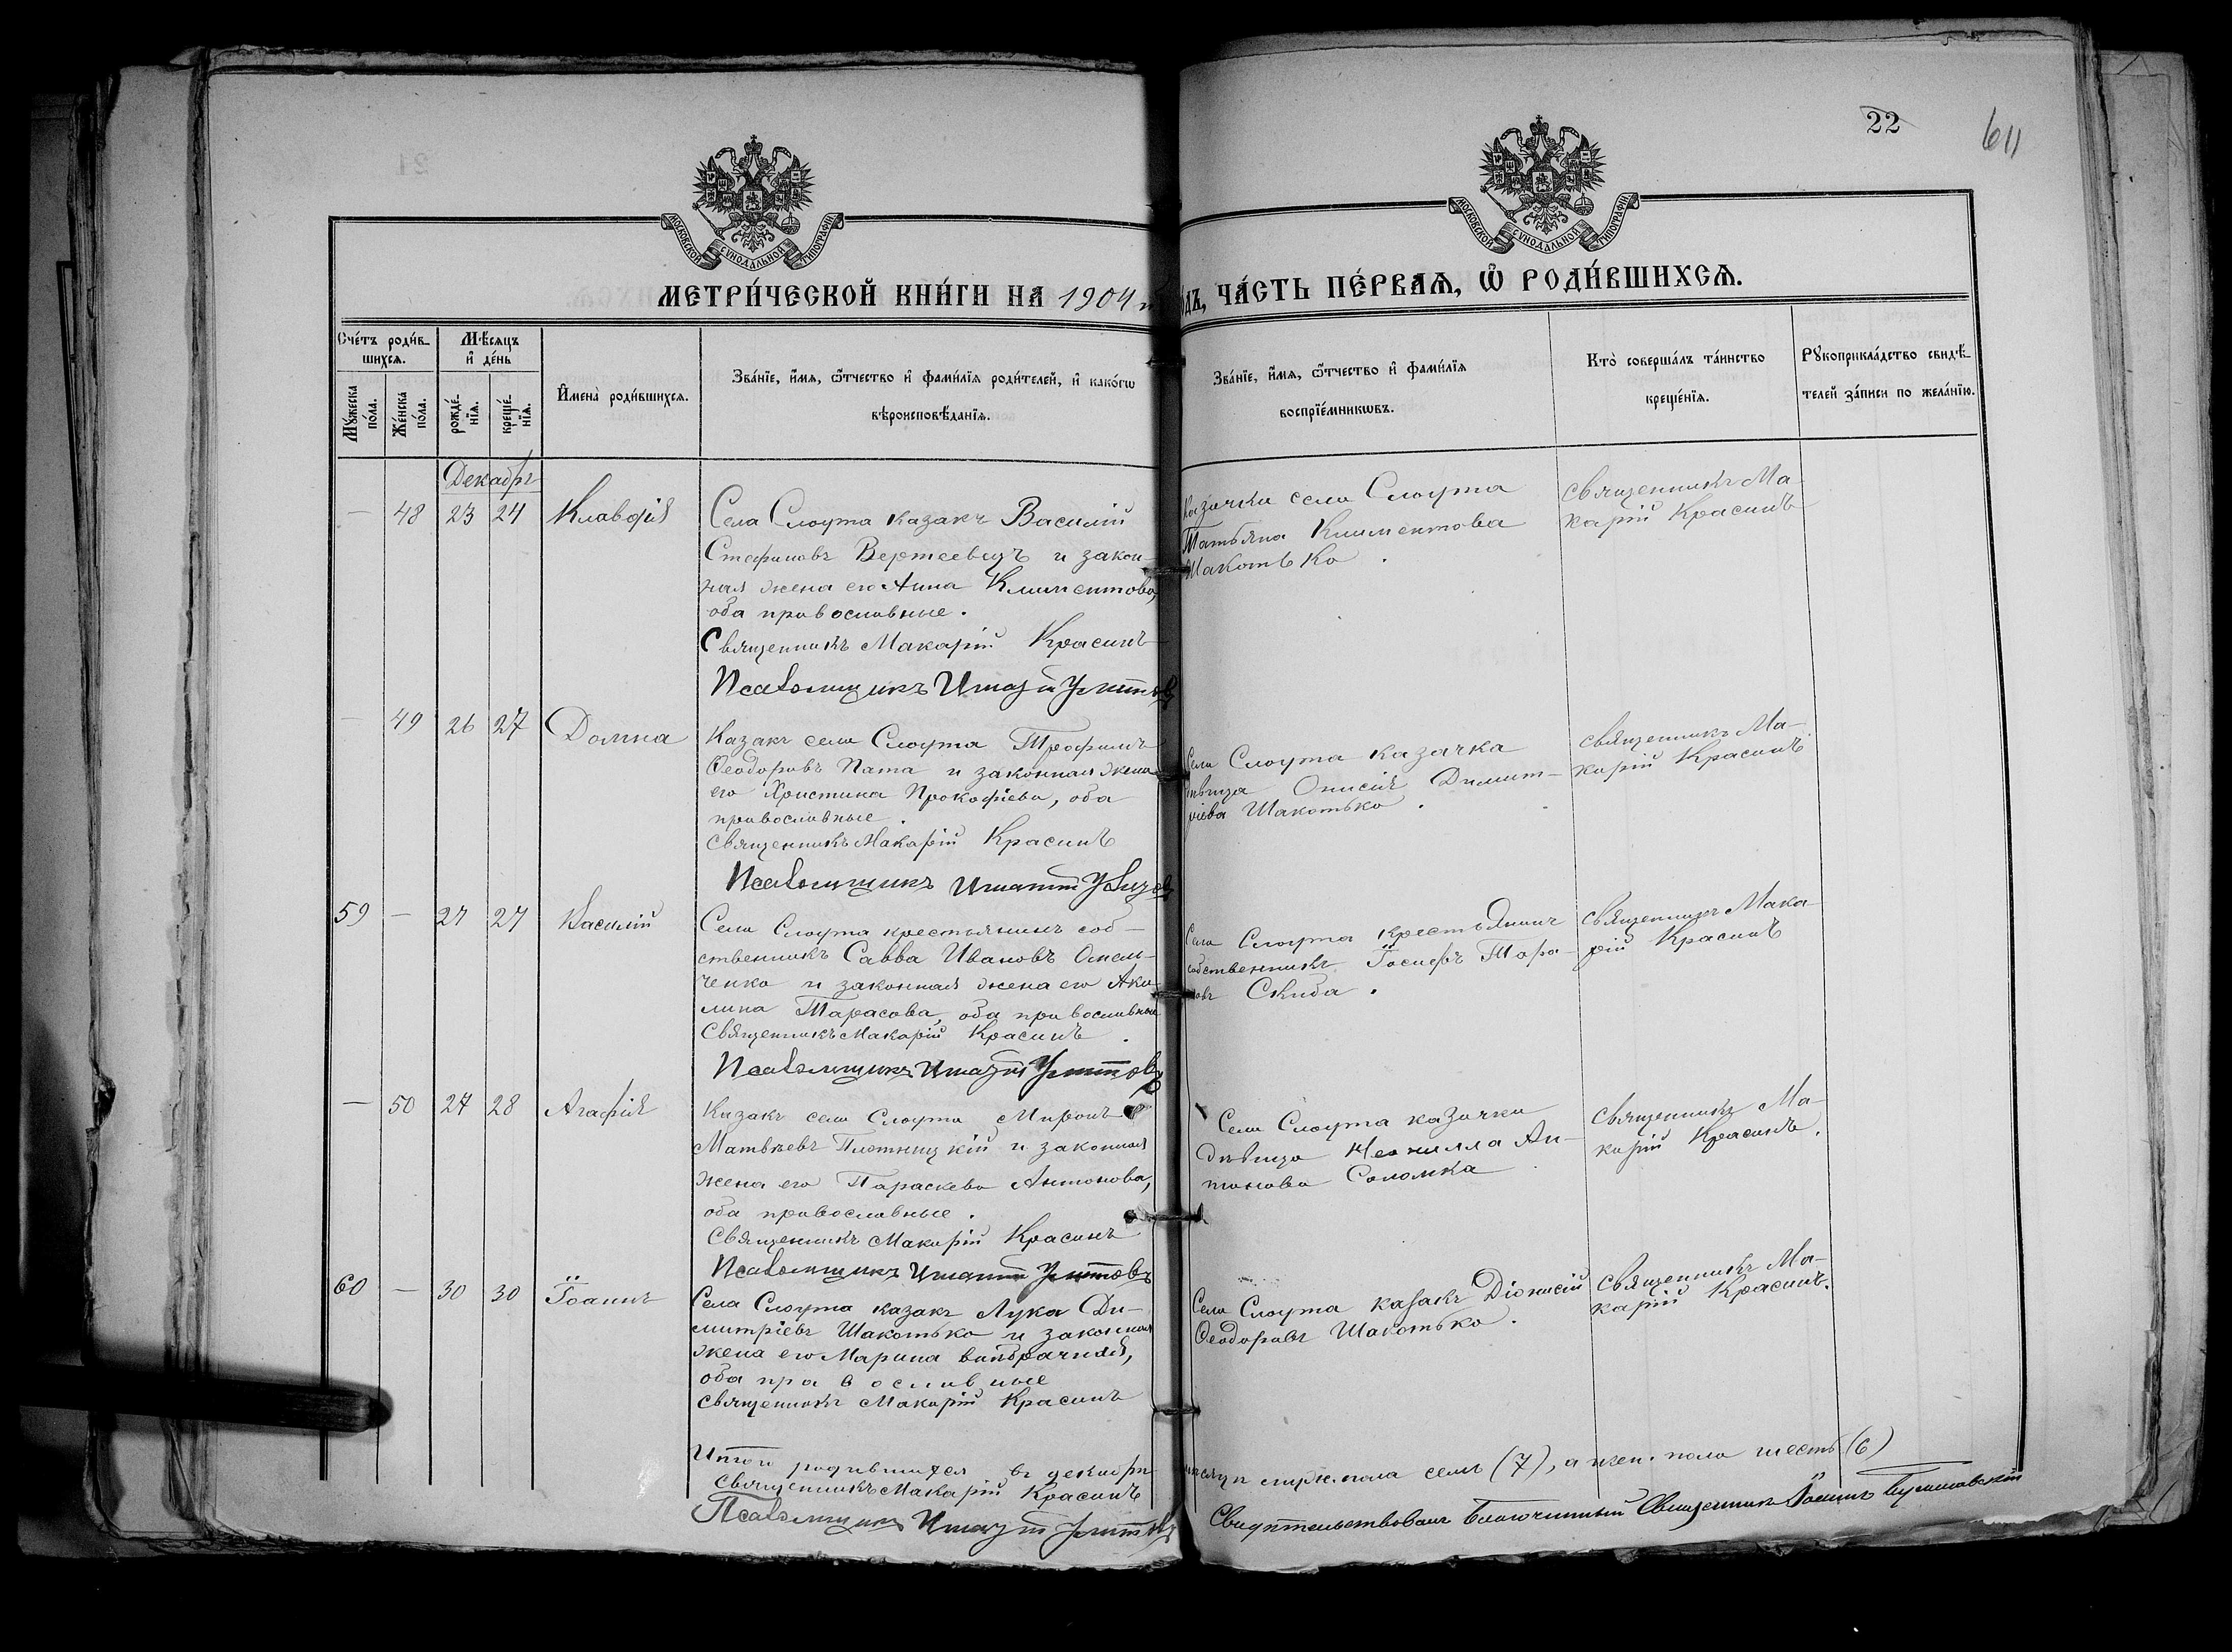 22
611
МОСКОВСКОЙ СѴНОДАЛЬНОЙ ТИПОГРАФІИ
МОСКОВСКОЙ СѴНОДАЛЬНОЙ ТИПОГРАФІИ
МЕТРИ́ЧЕСКОЙ КНИ́ГИ НА 1904
ЧА́СТЬ ПЕ́РВАѦ, Ѽ РОДИ́ВШИХСѦ.
Сче́тъ роди́в-
шихся.
Мꙋ́жеска по́ла.
Же́нска по́ла.
Мѣ́сяцъ и҆ де́нь
рожде́-
нїя.
креще́-
нїя.
И҆мена̀ роди́вшихся.
Зва́нїе, и҆́мя, ѻ҆́тчество и҆ фами́лїя роди́телей, и҆ како́гѡ
вѣроисповѣ́данїя.
Зва́нїе, и҆́мя, ѻ҆́тчество и҆ фами́лїя
воспрїе́мникѡвъ.
Кто̀ соверша́лъ та́инство
креще́нїя.
Рꙋкоприкла́дство свидѣ́-
телей за́писи по жела́нїю.
Декабрь
— 48 23 24 Клавдія
Села Слоута казакъ Василій
Стефановъ Вертеевецъ и закон-
ная жена его Анна Климентова,
оба православные.
Священникъ Макарій Красинъ
Псаломщикъ
казачка села Слоута
Татьяна Климентова
Шакотько.
священникъ Ма-
карій Красинъ
— 49 26 27 Домна
Казакъ села Слоута Трофимъ
Ѳеодоровъ Пата и законная жена
его Христина Прокофіева, оба
православные.
священникъ Макарій Красинъ
Псаломщикъ
Села Слоута казачка
дѣвица Онисія Димит-
ріева Шакотько.
священникъ Ма-
карій Красинъ
59 — 27 27 Василій
Села Слоута крестьянинъ соб-
ственникъ Савва Ивановъ Омель-
ченко и законная жена его Аки-
лина Тарасова, оба православные
Священникъ Макарій Красинъ.
Псаломщикъ
Села Слоута крестьянинъ
собственникъ Іосифъ Тара-
совъ Скиба.
священникъ Мака-
рій Красинъ
— 50 27 28 Агафія
Казакъ села Слоута Миронъ
Матвѣевъ Плетницкій и законная
жена его Параскева Антонова,
оба православные.
священникъ Макарій Красинъ
Псаломщикъ
Села Слоута казачка
дѣвица Неонилла Ан-
тонова Соломка
священникъ Ма-
карій Красинъ.
60 — 30 30 Іоаннъ
Села Слоута казакъ Лука Ди-
митріевъ Шакотько и законная
жена его Марина внѣбрачная,
оба православные
священникъ Макарій Красинъ
Села Слоута казакъ Діонисій
Ѳеодоровъ Шакотько.
священникъ Ма-
карій Красинъ.
Итого родившихся въ декабрѣ
мѣсяцѣ муж. пола семь (7), а жен. пола шесть (6)
священникъ Макарій Красинъ
Псаломщикъ
Свидѣтельствовалъ Благочинный Священникъ Іоаннъ